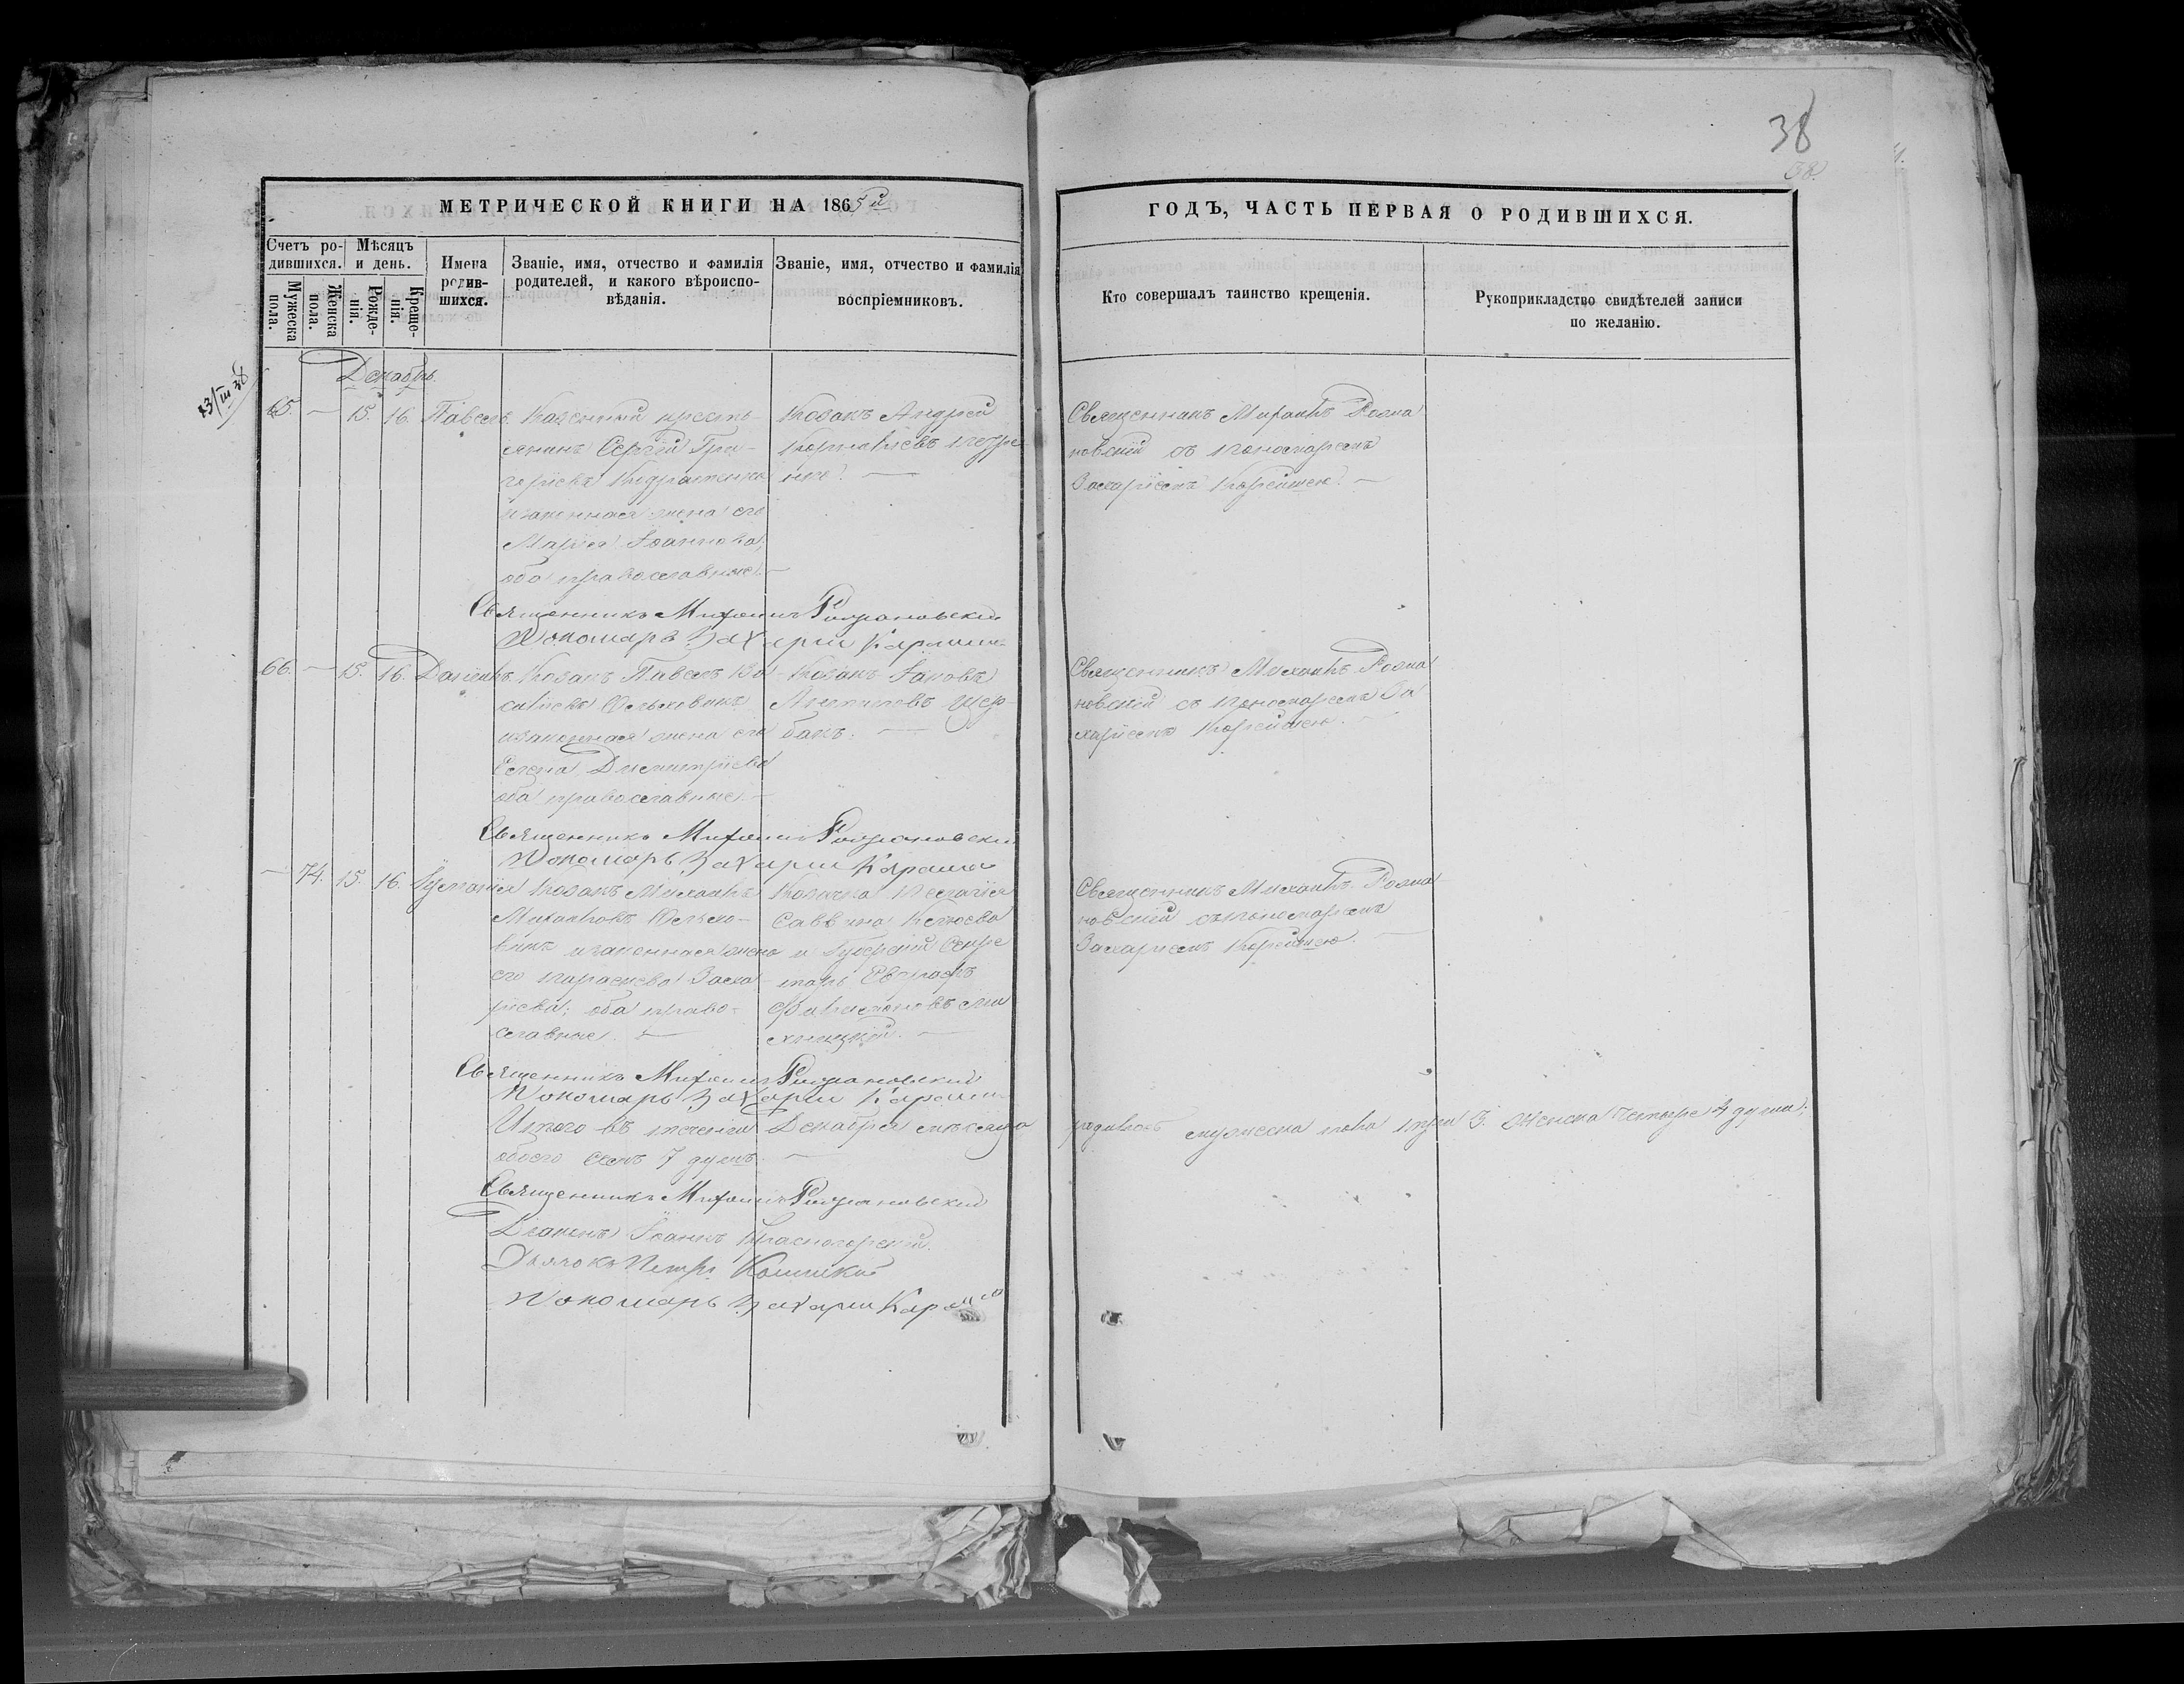 38
38.
МЕТРИЧЕСКОЙ КНИГИ НА 1865й
ГОДЪ, ЧАСТЬ ПЕРВАЯ О РОДИВШИХСЯ.
Счетъ ро-
дившихся.
Мужеска
пола.
Женска
пола.
Мѣсяцъ
и день.
Рожде-
нія.
Креще-
нія.
Имена
родив-
шихся.
Званіе, имя, отчество и фамилія
родителей, и какого вѣроиспо-
вѣданія.
Званіе, имя, отчество и фамилія
воспріемниковъ.
Кто совершалъ таинство крещенія.
Рукоприкладство свидѣтелей записи
по желанію.
Декабрь.
65. — 15. 16. Павелъ
Казенный кресть-
янинъ Сергій Гри-
горіевъ
изаконная жена его
Марія Іоаннова,
оба православные. —
Козакъ Андрей
Корниліевъ
Священникъ Михаилъ Рома
новскій съ пономаремъ
Захаріемъ
Священникъ Михаилъ Романовский
Пономарь Захарий
66. — 15. 16. Даніилъ
Козакъ Павелъ Ва
силіевъ
изаконная жена его
Елена Димитріева
оба православные. —
Козакъ Іаковъ
Щер-
бакъ. —
Священникъ Михаилъ Рома
новскій съ пономаремъ За
харіемъ
Священникъ Михаилъ Романовский
Пономарь Захарий
— 74. 15. 16.
Козакъ Михаилъ
Михаиловъ
изаконная жена
его Параскева Заха
ріева; оба право-
славные. —
Козачка Пелагія
Саввина
и Губерскій Секре
тарь Евграфъ
Священникъ Михаилъ Рома
новскій съ пономаремъ
Захаріемъ
Священникъ Михаилъ Романовский
Пономарь Захарий
Итого въ теченіи Декабря мѣсяца родилось мужеска пола три 3. женска четыре 4 души;
обоего семь 7 душъ. —
Священникъ Михаилъ Романовский
Діаконъ Іоаннъ Красногорскій.
Дьячокъ Петръ
Пономарь Захарий